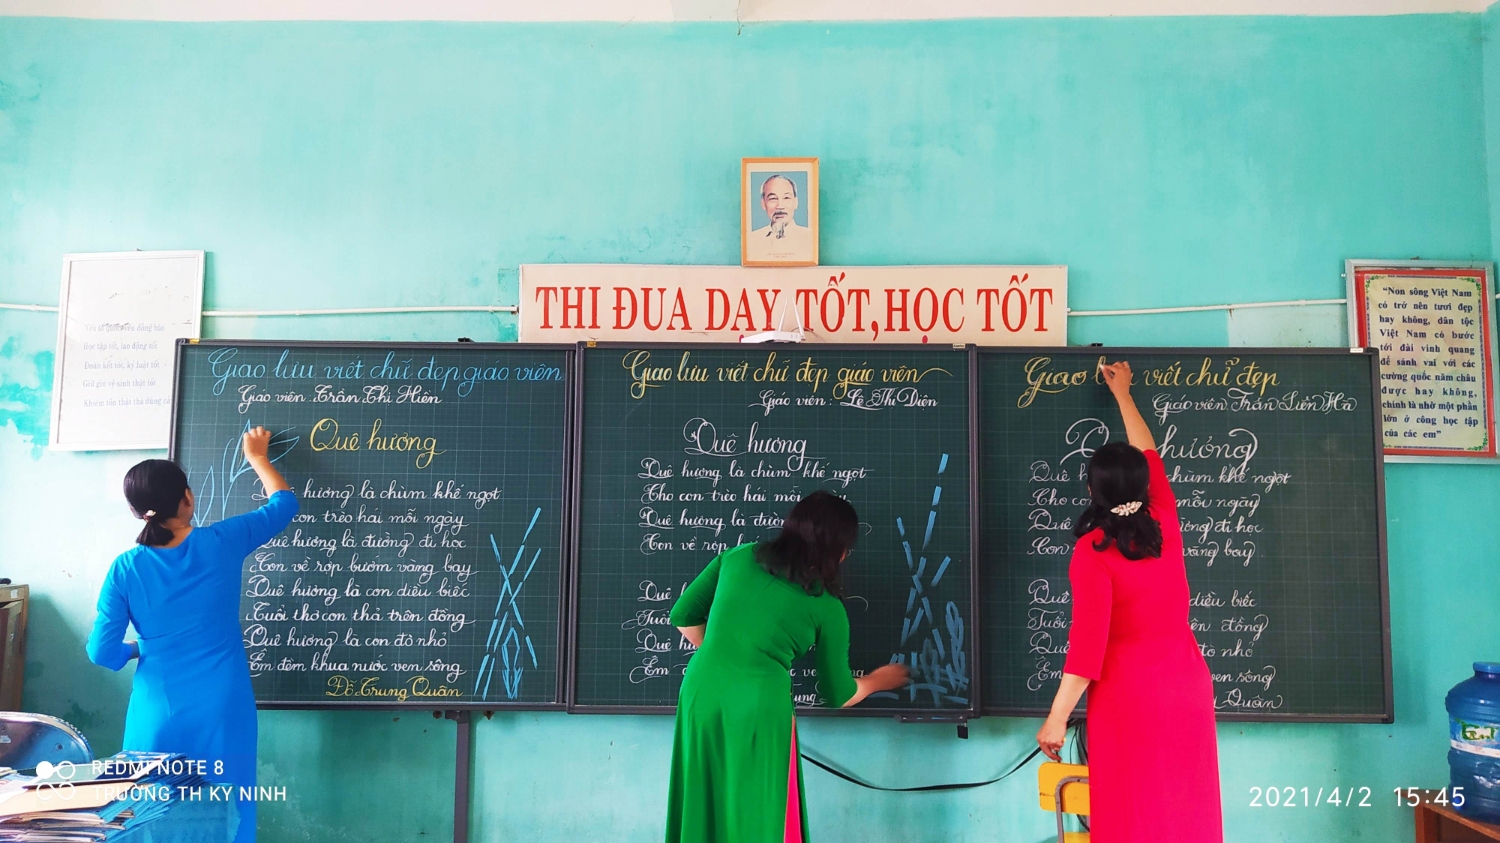 THI ĐUA DẠY TỐT, HỌC TỐT
Yêu tổ quốc, yêu đồng bào
Học tập tốt, lao động tốt
Đoàn kết tốt, kỷ luật tốt
Giữ gìn vệ sinh thật tốt
Khiêm tốn thật thà dũng cả
"Non sông Việt Nam
có trở nên tươi đẹp
hay không, dân tộc
Việt Nam có bước
tới đài vinh quang
để sánh vai với các
cường quốc năm châu
được hay không,
chính là nhờ một phần
lớn ở công học tập
của các em"
Giao lưu viết chữ đẹp giáo viên
Giáo viên: Trần Thị Hiên
Quê hương
hương là chùm khế ngọt
con trèo hái mỗi ngày
Quê hương là đường đi học
Con về rợp bướm vàng bay
Quê hương là con diều biếc
Tuổi thơ con thả trên đồng
Quê hương là con đò nhỏ
Êm đềm khua nước ven sông
Đỗ Trung Quân
Giao lưu viết chữ đẹp giáo viên
Giáo viên: Lê Thị Diên
Quê hương
Quê hương là chùm khế ngọt
Cho con trèo hái mỗi ngày
Quê hương là đườn
Con về rợp
Quê
Tuổi
Quê hư
Êm
ve
ung
Giao viết chữ đẹp
Giáo viên Trần Liên Hà
hương
Quê chùm khế ngọt
Cho co mỗi ngày
Quê đi học
Con vàng bay
Quê diều biếc
Tuổi ên đồng
Quê đò nhỏ
Êm ven sông
Quân
REDMI NOTE 8
TRƯỜNG TH KỲ NINH
2021/4/2 15:45